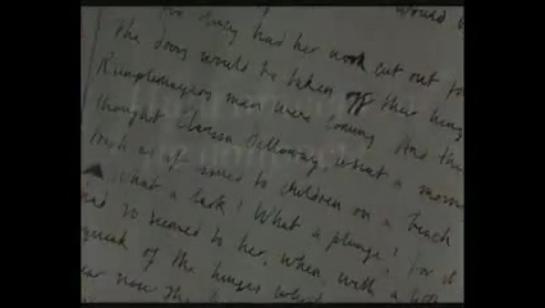 would
Lucy had her work cut out for
The doors would be taken off their hing
Rumplemayers men were coming. And then
thought Clarissa Dalloway, what a morning
fresh as if issued to children on a beach
What a lark! What a plunge! For it
had so seemed to her, when, with a
squeak of the hinges, which
ear now the